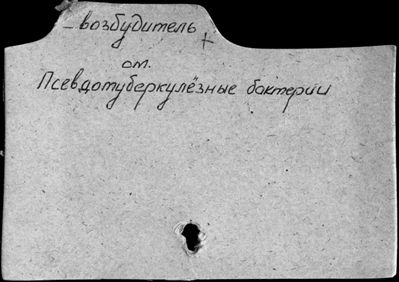 – возбудитель +
см.
Псевдотуберкулёзные бактерии